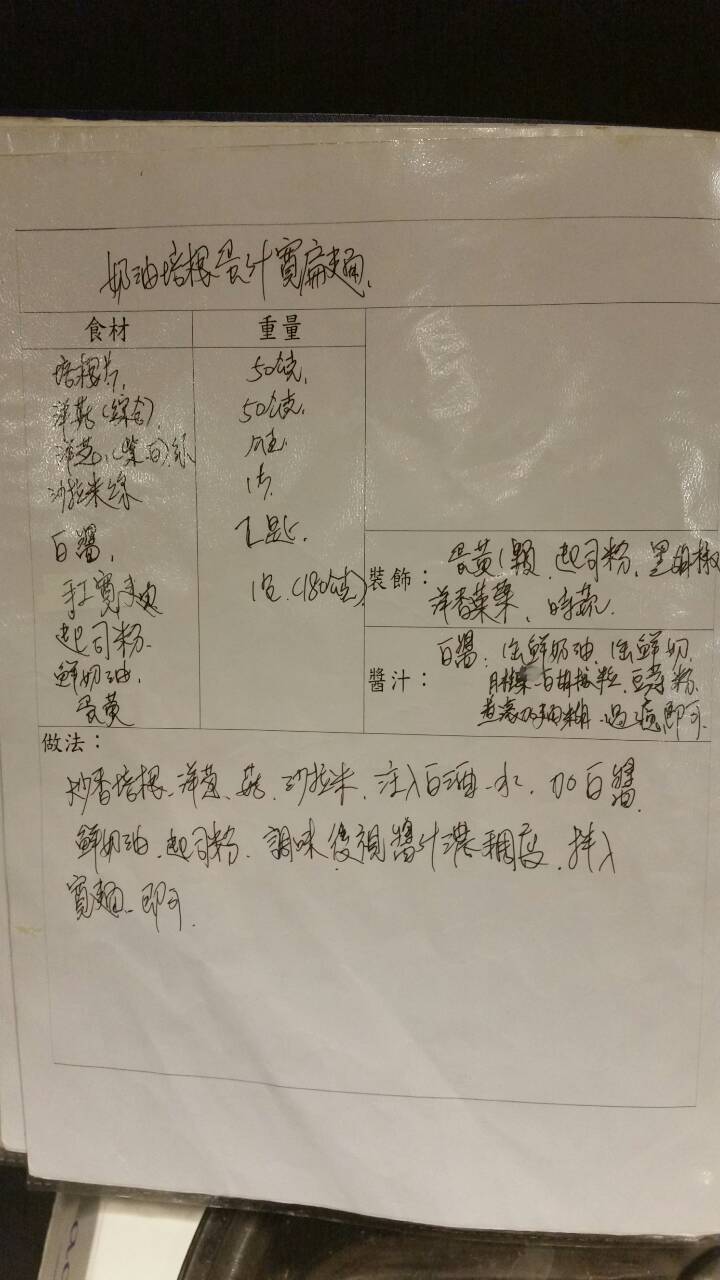 奶油培根蛋汁寬扁麵.
食材 重量
培根片, 50克,
洋菇(綜合), 50克,
洋蔥,(紫.白)絲
沙拉米絲 1片
白醬, 2匙.
手工寬麵 1包.(180克)
起司粉.
鮮奶油,
蛋黃
裝飾： 蛋黃1顆.起司粉.黑胡椒
洋香菜葉、時蔬.
醬汁： 白醬: 鮮奶油. 鮮奶.
白胡椒粒.豆蔻粉.
糊.過濾即可.
做法：
炒香培根、洋蔥、菇、沙拉米.注入白酒、水.加白醬.
鮮奶油.起司粉.調味後視醬汁濃稠度.拌入
寬麵、即可.